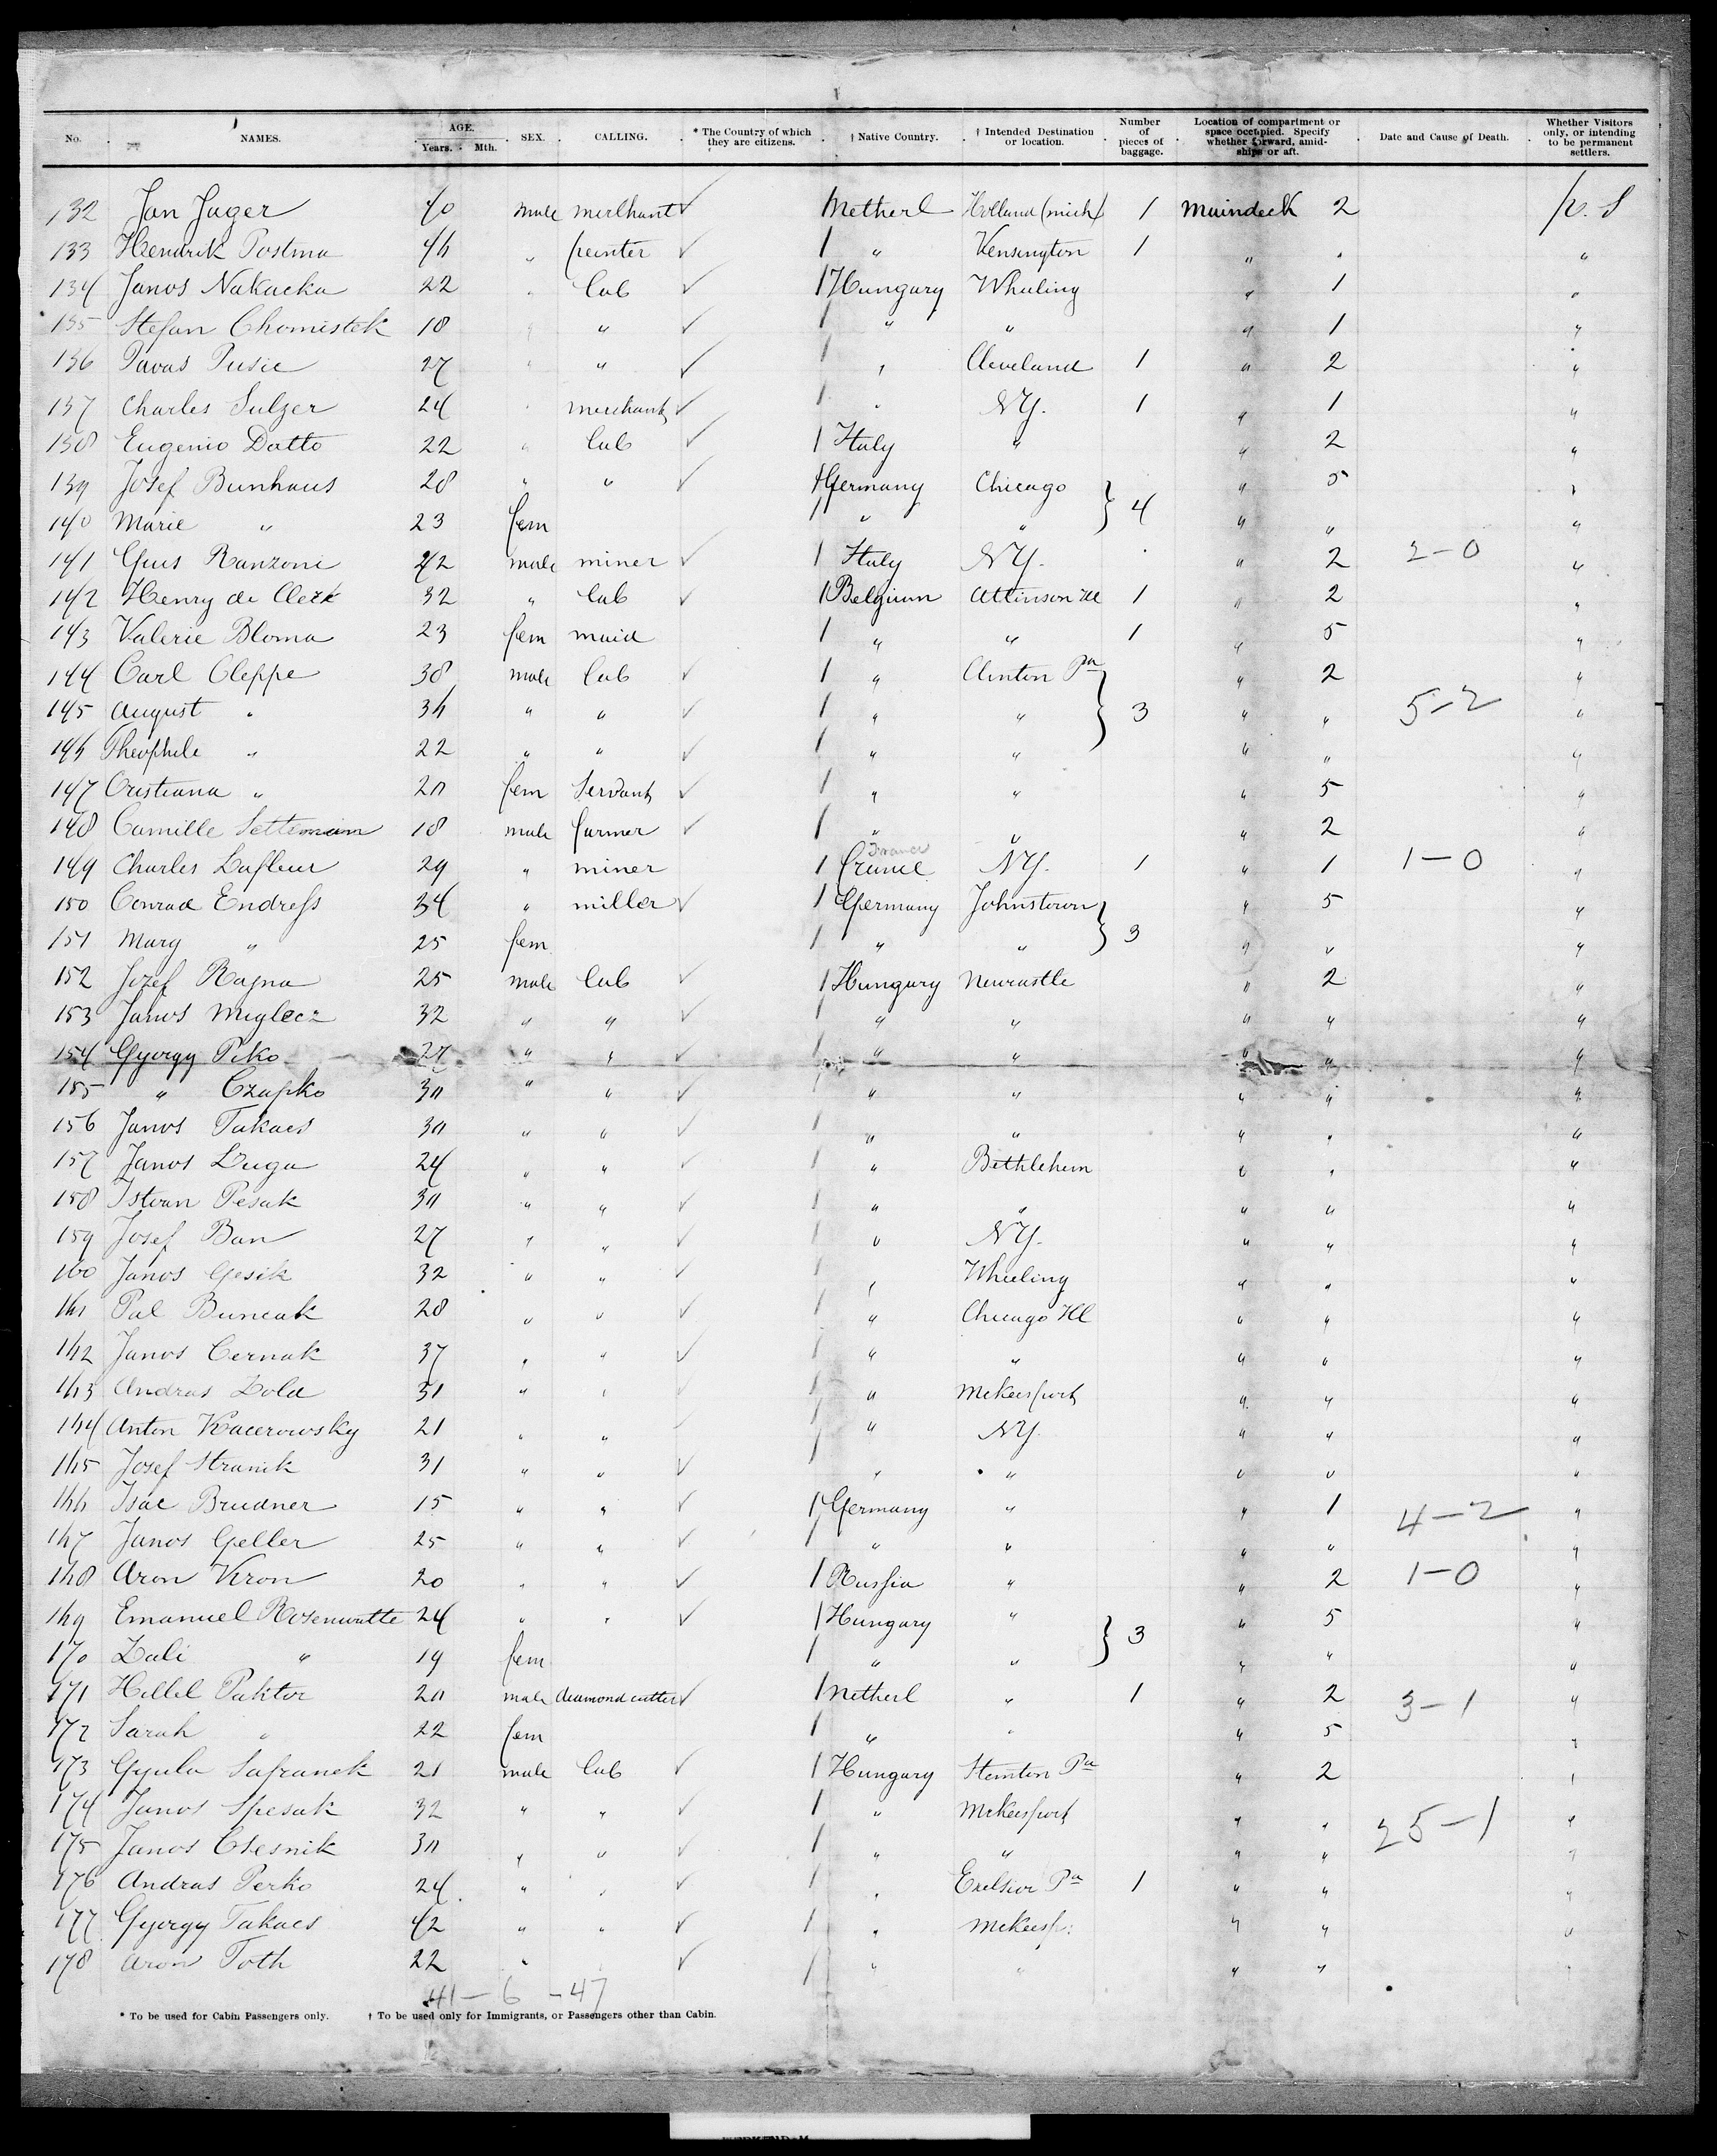 No. NAMES. AGE. Years. Mth. SEX. CALLING. * The Country of which they are citizens. † Native Country. † Intended Destination or location. Number of pieces of baggage. Location of compartment or space occupied. Specify whether forward, amidships or aft. Date and Cause of Death. Whether Visitors only, or intending to be permanent settlers.
132 Jan Jager 40 male merchant ✓ 1 Netherl Holland (mich) 1 Maindeck 2 p. S
133 Hendrik Postma 46 " peinter ✓ 1 " Kensington 1 " " "
134 Janos Nakacka 22 " lab ✓ 1 Hungary Wheeling " 1 "
135 Stefan Chomistek 18 " " ✓ 1 " " " 1 "
136 Pavas Pusic 27 " " ✓ 1 " Cleveland 1 " 2 "
137 Charles Sulzer 24 " merchant ✓ 1 " NY. 1 " 1 "
138 Eugenio Datto 22 " lab ✓ 1 Italy " " 2 "
139 Josef Bunhaus 28 " " ✓ 1 Germany Chicago } 4 " 5 "
140 Marie " 23 fem 1 " " " " "
141 Gius Ranzoni 42 male miner ✓ 1 Italy NY. " 2 2-0 "
142 Henry de Clerk 32 " lab ✓ 1 Belgium Attinson Ill 1 " 2 "
143 Valerie Bloma 23 fem maid 1 " " 1 " 5 "
144 Carl Cleppe 38 male lab ✓ 1 " Clinton Pa } 3 " 2 "
145 August " 36 " " ✓ 1 " " " " 5-2 "
146 Theophile " 22 " " ✓ 1 " " " " "
147 Cristiana " 20 fem Servant ✓ 1 " " " 5 "
148 Camille Settemain 18 male farmer ✓ 1 " " " 2 "
149 Charles Lafleur 29 " miner 1 France NY. 1 " 1 1-0 "
150 Conrad Endress 34 " miller ✓ 1 Germany Johnstown } 3 " 5 "
151 Mary " 25 fem 1 " " " " "
152 Jozef Rajna 25 male lab ✓ 1 Hungary Newcastle " 2 "
153 Janos Miglecz 32 " " ✓ 1 " " " " "
154 Gyorgy Piko 27 " " ✓ 1 " " " " "
155 " Czapko 30 " " ✓ 1 " " " " "
156 Janos Takacs 30 " " ✓ 1 " " " " "
157 Janos Luga 24 " " ✓ 1 " Bethlehem " " "
158 Istvan Pesak 30 " " ✓ 1 " " " " "
159 Josef Ban 27 " " ✓ 1 " NY. " " "
160 Janos Gesik 32 " " ✓ 1 " Wheeling " " "
161 Pal Buncak 28 " " ✓ 1 " Chicago Ill " " "
162 Janos Cernak 37 " " ✓ 1 " " " " "
163 Andras Zold 31 " " ✓ 1 " McKeesport " " "
164 Anton Kacerowsky 21 " " ✓ 1 " NY. " " "
165 Josef Stranik 31 " " ✓ 1 " " " " "
166 Isac Brudner 15 " " ✓ 1 Germany " " 1 4-2 "
167 Janos Geller 25 " " ✓ 1 " " " " "
168 Aron Kron 20 " " ✓ 1 Russia " " 2 1-0 "
169 Emanuel Rosenwatte 24 " " ✓ 1 Hungary " } 3 " 5 "
170 Zali " 19 fem 1 " " " " "
171 Hillel Paktor 20 male diamond cutter ✓ 1 Netherl " 1 " 2 3-1 "
172 Sarah " 22 fem 1 " " " 5 "
173 Gyula Safranek 21 male lab ✓ 1 Hungary Stemton Pa " 2 "
174 Janos Spesak 32 " " ✓ 1 " McKeesport " " 25-1 "
175 Janos Clesnik 30 " " ✓ 1 " " " " "
176 Andras Perko 24 " " ✓ 1 " Exelsior Pa 1 " " "
177 Gyorgy Takacs 42 " " ✓ 1 " McKeesp: " " "
178 Aron Toth 22 " " ✓ 1 " " " " "
41-6-47
* To be used for Cabin Passengers only. † To be used only for Immigrants, or Passengers other than Cabin.